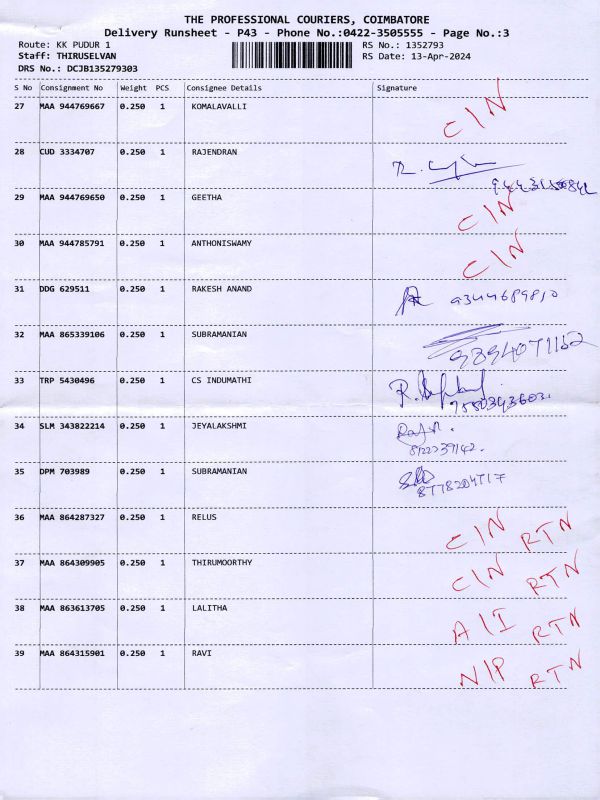 THE PROFESSIONAL COURIERS, COIMBATORE
Delivery Runsheet - P43 - Phone No.:0422-3505555 - Page No.:3
Route: KK PUDUR 1 RS No.: 1352793
Staff: THIRUSELVAN RS Date: 13-Apr-2024
DRS No.: DCJB135279303
S No Consignment No Weight PCS Consignee Details Signature
27 MAA 944769667 0.250 1 KOMALAVALLI C/N
28 CUD 3334707 0.250 1 RAJENDRAN
29 MAA 944769650 0.250 1 GEETHA C/N
30 MAA 944785791 0.250 1 ANTHONISWAMY C/N
31 DDG 629511 0.250 1 RAKESH ANAND 9344689810
32 MAA 865339106 0.250 1 SUBRAMANIAN
33 TRP 5430496 0.250 1 CS INDUMATHI
34 SLM 343822214 0.250 1 JEYALAKSHMI
35 DPM 703989 0.250 1 SUBRAMANIAN
36 MAA 864287327 0.250 1 RELUS C/N RTN
37 MAA 864309905 0.250 1 THIRUMOORTHY C/N RTN
38 MAA 863613705 0.250 1 LALITHA A/I RTN
39 MAA 864315901 0.250 1 RAVI N/P RTN